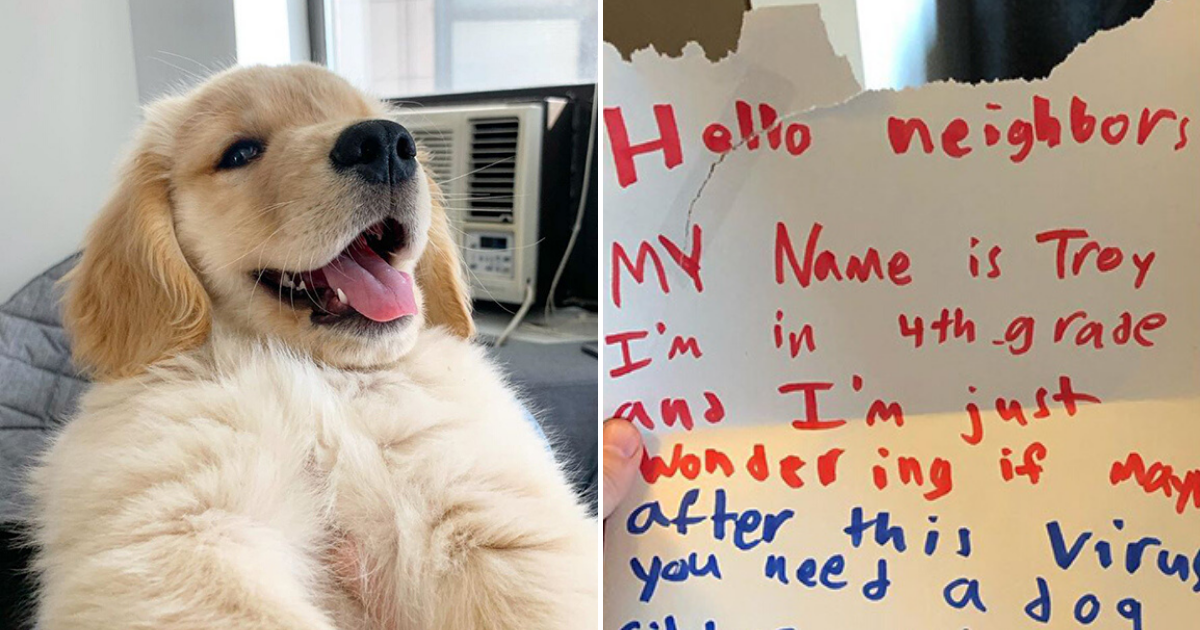 Hello neighbors
MY Name is Troy
I'm in 4th grade
and I'm just
wondering if
after this Virus
you need a dog